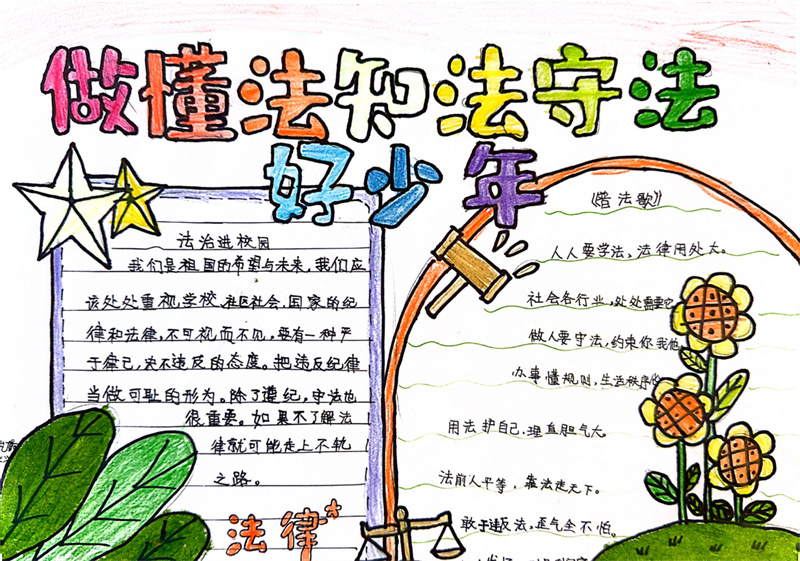 做懂法知法守法
好少年
法治进校园
我们是祖国的希望与未来，我们应
该处处重视学校、社区社会、国家的纪
律和法律，不可视而不见，要有一种严
于律己，决不违反的态度。把违反纪律
当做可耻的形为。除了遵纪，守法也
很重要。如果不了解法
律就可能走上不轨
之路。
法律
《普法歌》
人人要学法，法律用处大。
社会各行业，处处需要它
做人要守法，约束你我他
办事懂规则，生活秩序
用法护自己，理直胆气大。
法前人平等，靠法走天下。
敢于违反法，歪气全不怕。